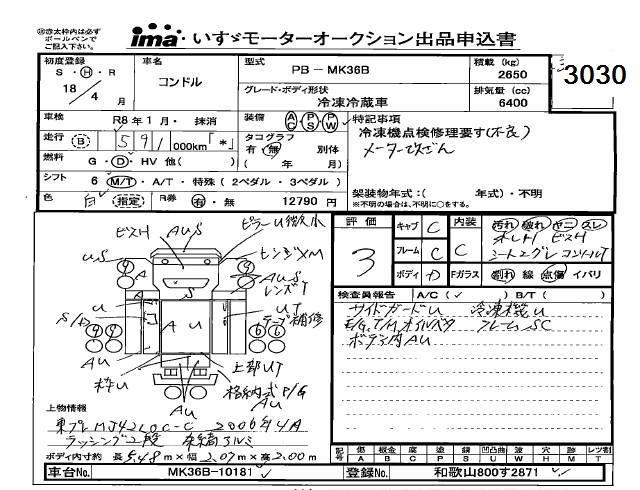 ㊟赤太枠内は必ず
ボールペンで
ご記入下さい。
ima いすゞモーターオークション出品申込書
初度登録 車名 型式 積載 (kg)
S・H・R コンドル PB－MK36B 2650 3030
18／4 月 グレード・ボディ形状 排気量 (cc)
冷凍冷蔵車 6400
車検 R8 年 1 月・抹消 装備 AC PS PW 特記事項
走行 B 591,000km「*」 タコグラフ 冷凍機点検修理要す(不良)
有・無 別体 メーター改ざん
燃料 G・D・HV 他( ) ( 年 月)
シフト 6 M/T・A/T・特殊(2ペダル・3ペダル) 架装物年式:( 年式)・不明
色 白 (指定) R券 有・無 12790 円 ※不明の場合は、不明に○をする。
評価 キャブ C 内装 汚れ 破れ ヤニ スレ
3 フレーム C C
ボディ D Fガラス 割れ 線 点傷 イバリ
ピスH AUS
ヒンジXM
US AUS
U UT
A U
テープ補修
AU 上部UT
枠U
AU
検査員報告 A/C( ✓ ) B/T( )
サイドガードU 冷凍機U
E/G,T/M,オイルバタ フレームSC
ボデー内AU
上物情報
東プレ 2006年4A
ラッシング2段
ボディ内寸約 長5.48m×幅2.07m×高2.00m
記号 傷 板金 腐 塗 錆 凹凸曲 波 穴 跡 レツ割
A B C P S U W H M T
車台No. MK36B-10181 登録No. 和歌山800す2871